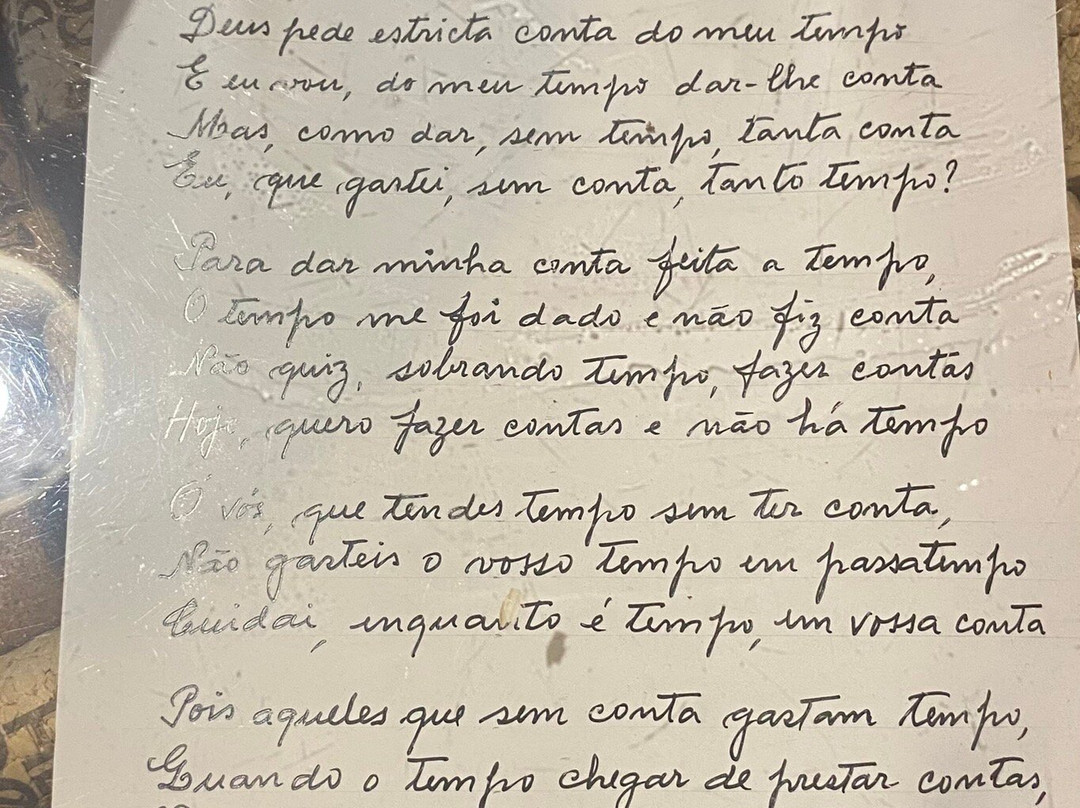 Deus pede estricta conta do meu tempo
E eu vou, do meu tempo dar-lhe conta
Mas, como dar, sem tempo, tanta conta
Eu, que gastei, sem conta, tanto tempo?
Para dar minha conta feita a tempo,
O tempo me foi dado e não fiz conta
Não quiz, sobrando tempo, fazer contas
Hoje, quero fazer contas e não há tempo
Ó vós, que tendes tempo sem ter conta,
Não gasteis o vosso tempo em passatempo
Cuidai, enquanto é tempo, em vossa conta
Pois aqueles que sem conta gastam tempo,
Quando o tempo chegar de prestar contas,